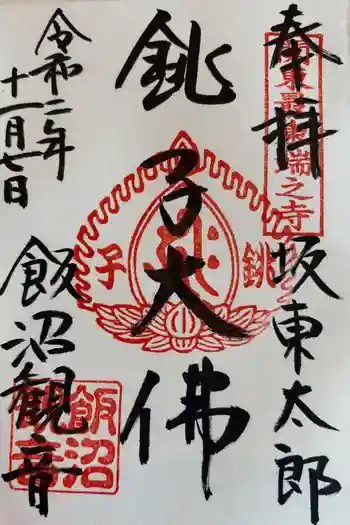 奉拝 坂東太郎
関東最東端之寺
銚子大佛
銚 子
令和二年
十一月七日
飯沼観音
飯沼
観音